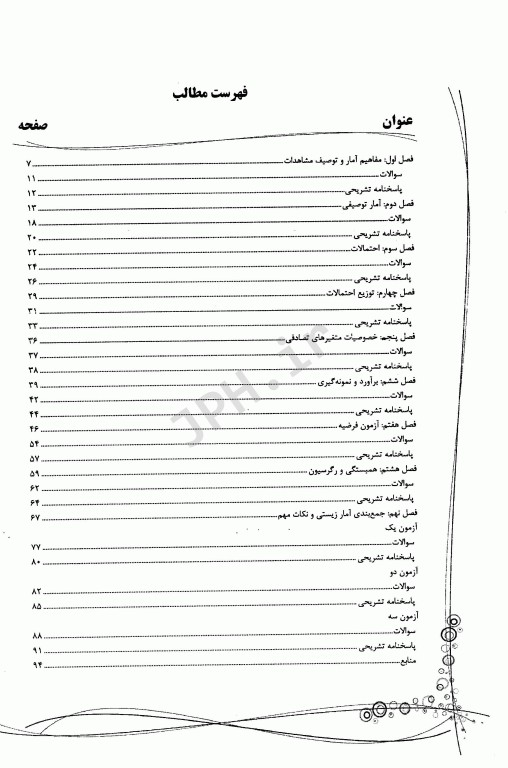 فهرست مطالب
عنوان صفحه
فصل اول: مفاهیم آمار و توصیف مشاهدات ۷
سوالات ۱۱
پاسخنامه تشریحی ۱۲
فصل دوم: آمار توصیفی ۱۳
سوالات ۱۸
پاسخنامه تشریحی ۲۰
فصل سوم: احتمالات ۲۲
سوالات ۲۴
پاسخنامه تشریحی ۲۶
فصل چهارم: توزیع احتمالات ۲۹
سوالات ۳۱
پاسخنامه تشریحی ۳۳
فصل پنجم: خصوصیات متغیرهای تصادفی ۳۶
سوالات ۳۷
پاسخنامه تشریحی ۳۸
فصل ششم: برآورد و نمونه‌گیری ۳۹
سوالات ۴۲
پاسخنامه تشریحی ۴۴
فصل هفتم: آزمون فرضیه ۴۶
سوالات ۵۴
پاسخنامه تشریحی ۵۷
فصل هشتم: همبستگی و رگرسیون ۵۹
سوالات ۶۲
پاسخنامه تشریحی ۶۴
فصل نهم: جمع‌بندی آمار زیستی و نکات مهم ۶۷
آزمون یک
سوالات ۷۷
پاسخنامه تشریحی ۸۰
آزمون دو
سوالات ۸۲
پاسخنامه تشریحی ۸۵
آزمون سه
سوالات ۸۸
پاسخنامه تشریحی ۹۱
منابع ۹۴
JPH.ir